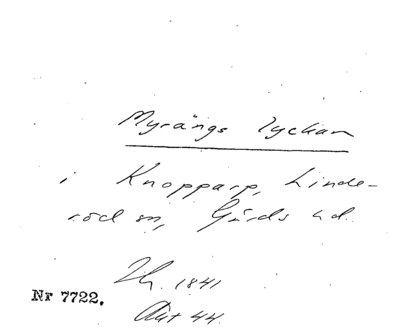 Myrängs lyckan
i Knopparp, Linde-
röd sn, Gärds hd.
1841
Nr 7722.
Akt 44.